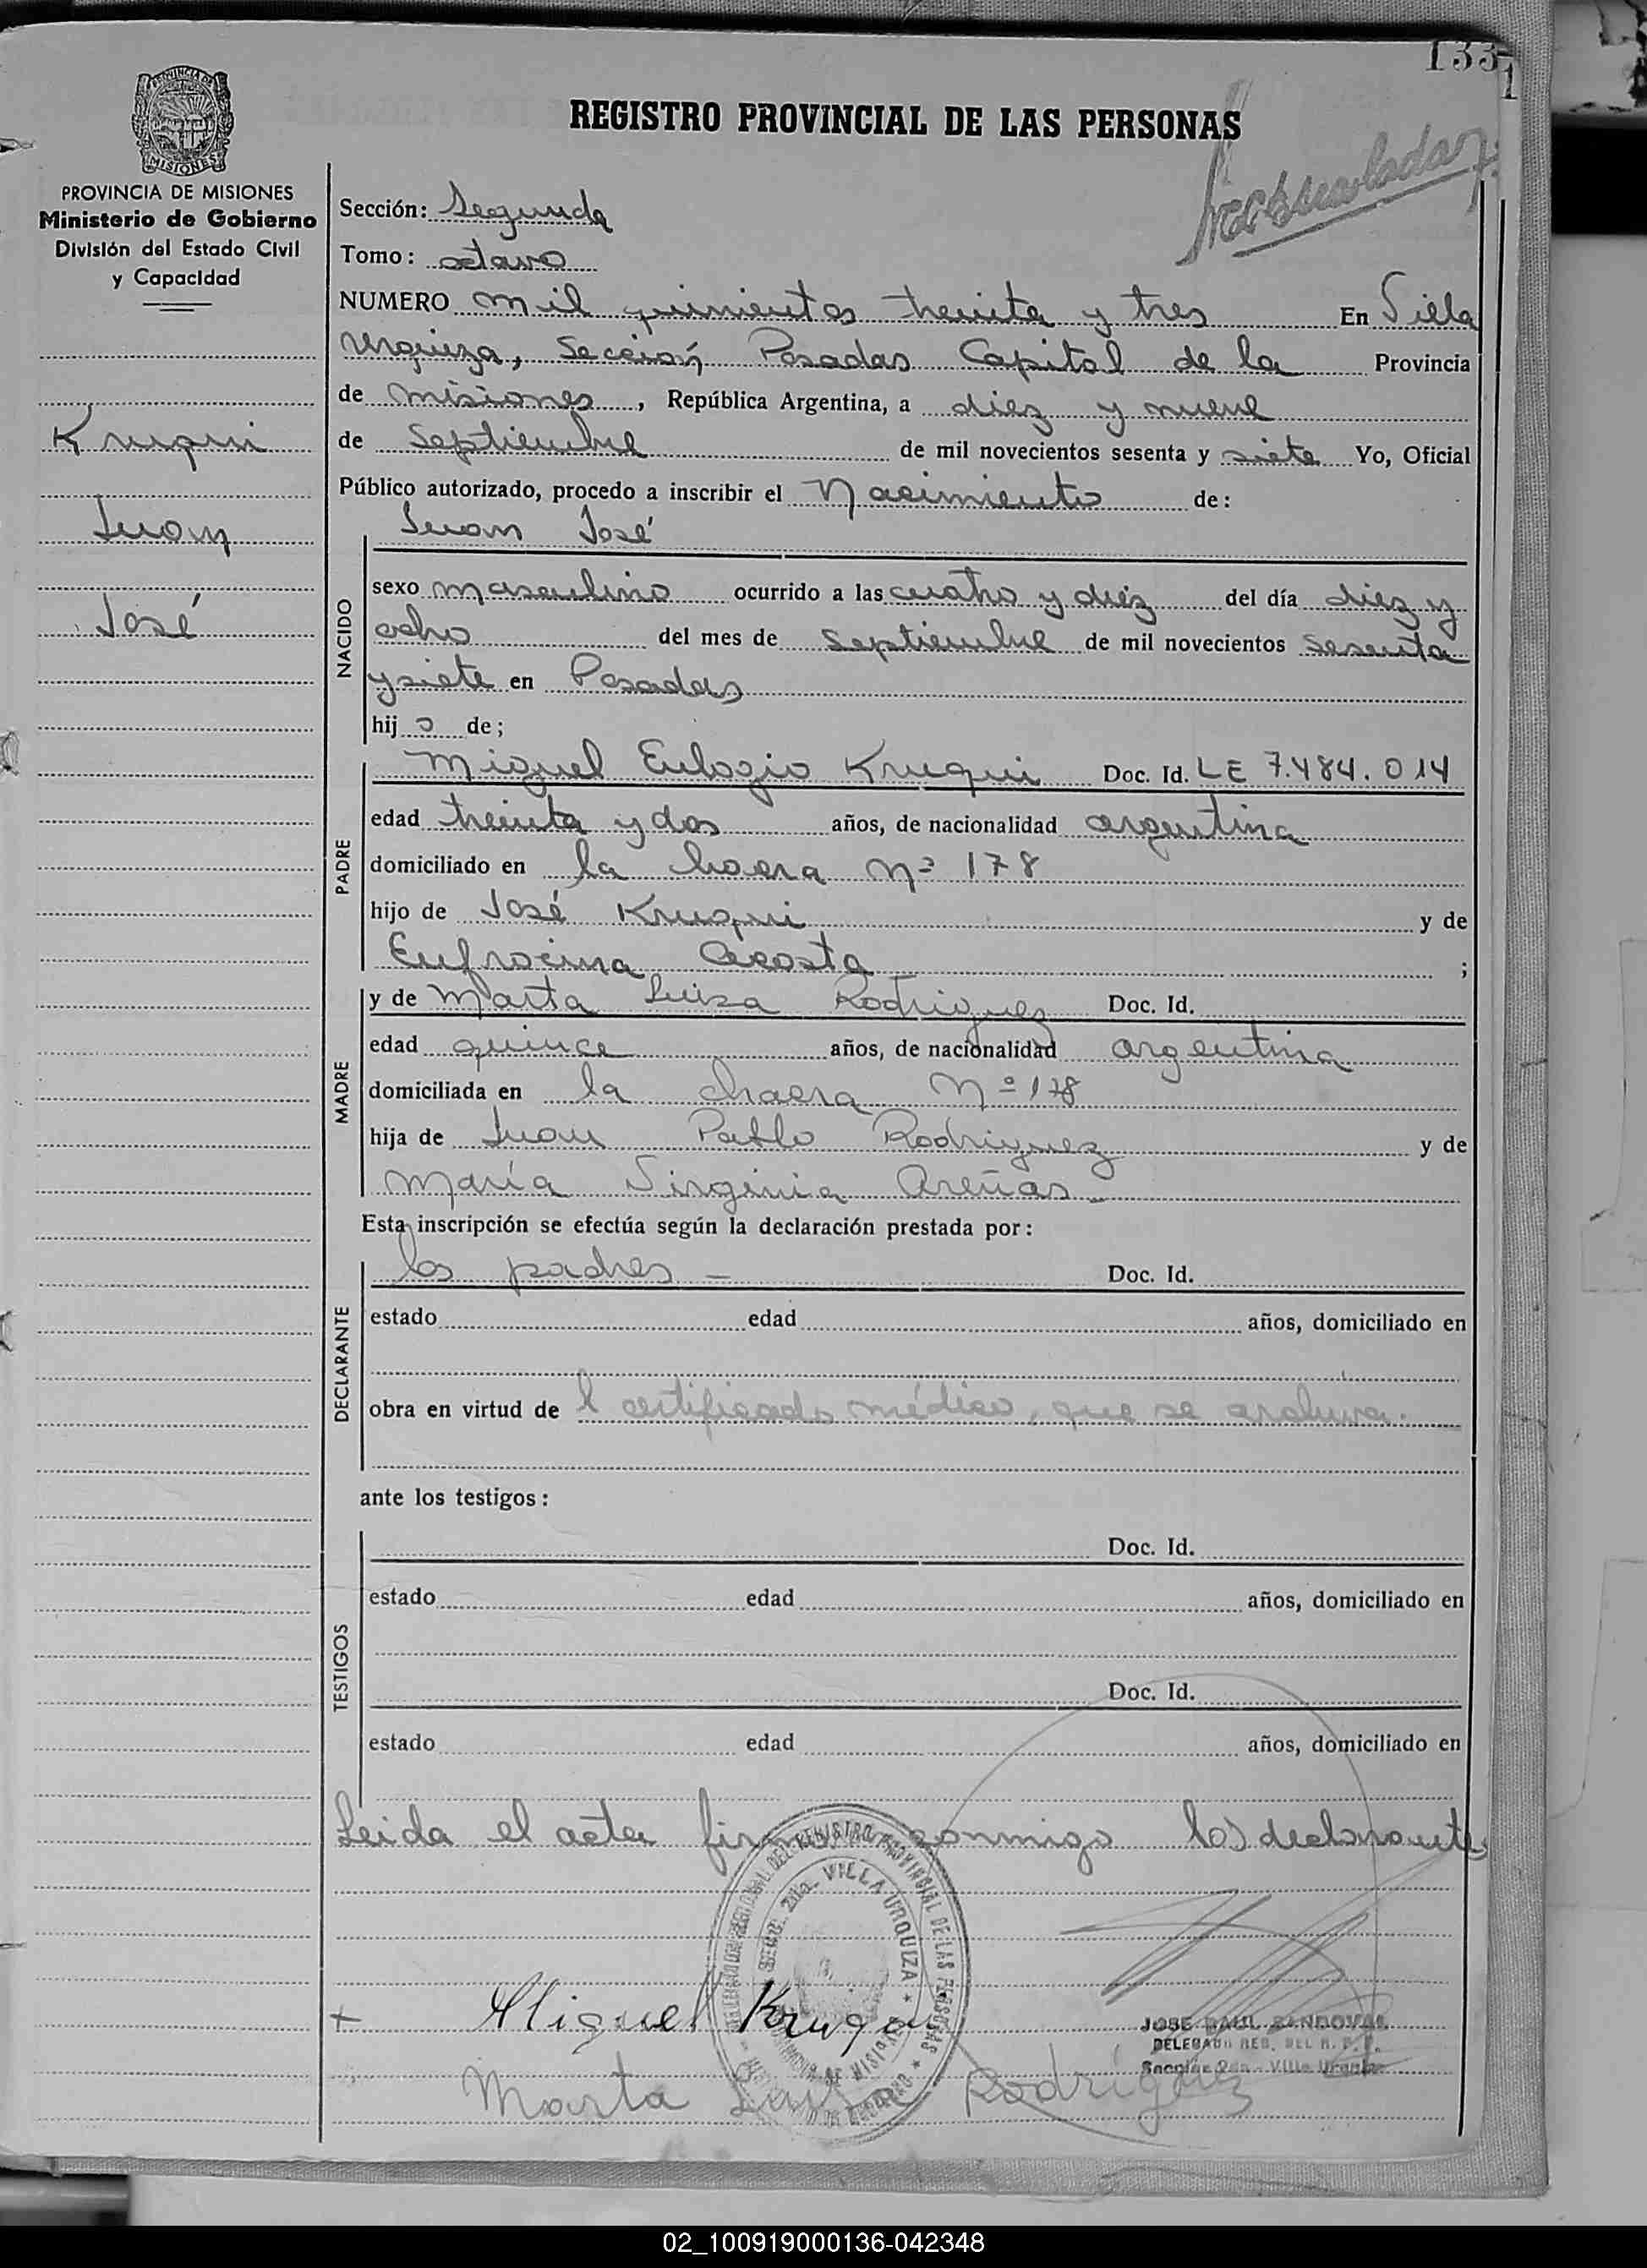 133
1
PROVINCIA DE
MISIONES
REGISTRO PROVINCIAL DE LAS PERSONAS
PROVINCIA DE MISIONES
Ministerio de Gobierno
División del Estado Civil
y Capacidad
Krugui
Juan
José
Sección: Segunda
Tomo: octavo
NUMERO mil quinientos treinta y tres En Villa
Urquiza, Sección Posadas Capital de la Provincia
de misiones, República Argentina, a diez y nueve
de Septiembre de mil novecientos sesenta y siete Yo, Oficial
Público autorizado, procedo a inscribir el Nacimiento de:
Juan José
NACIDO
sexo masculino ocurrido a las cuatro y diez del día diez y
ocho del mes de Septiembre de mil novecientos sesenta
y siete en Posadas
hijo de;
PADRE
Miguel Eulogio Krugui Doc. Id. LE 7.484.014
edad treinta y dos años, de nacionalidad argentina
domiciliado en la chacra Nº 178
hijo de José Krugui y de
Eufrocina Acosta ;
MADRE
y de Marta Luisa Rodriguez Doc. Id.
edad quince años, de nacionalidad argentina
domiciliada en la chacra Nº 178
hija de Juan Pablo Rodriguez y de
María Virginia Areñas -
Esta inscripción se efectúa según la declaración prestada por:
DECLARANTE
los padres - Doc. Id.
estado edad años, domiciliado en
obra en virtud de l certificado médico, que se archiva.
ante los testigos:
TESTIGOS
Doc. Id.
estado edad años, domiciliado en
Doc. Id.
estado edad años, domiciliado en
Leida el acta firman conmigo los declarantes
REGISTRO PROVINCIAL DE LAS PERSONAS
VILLA URQUIZA
+ Miguel Krugui
JOSE RAUL SANDOVAL
DELEGADO REG. DEL R. P. P.
Sección 2da. - Villa Urquiza
Marta Luisa Rodríguez
02_100919000136-042348